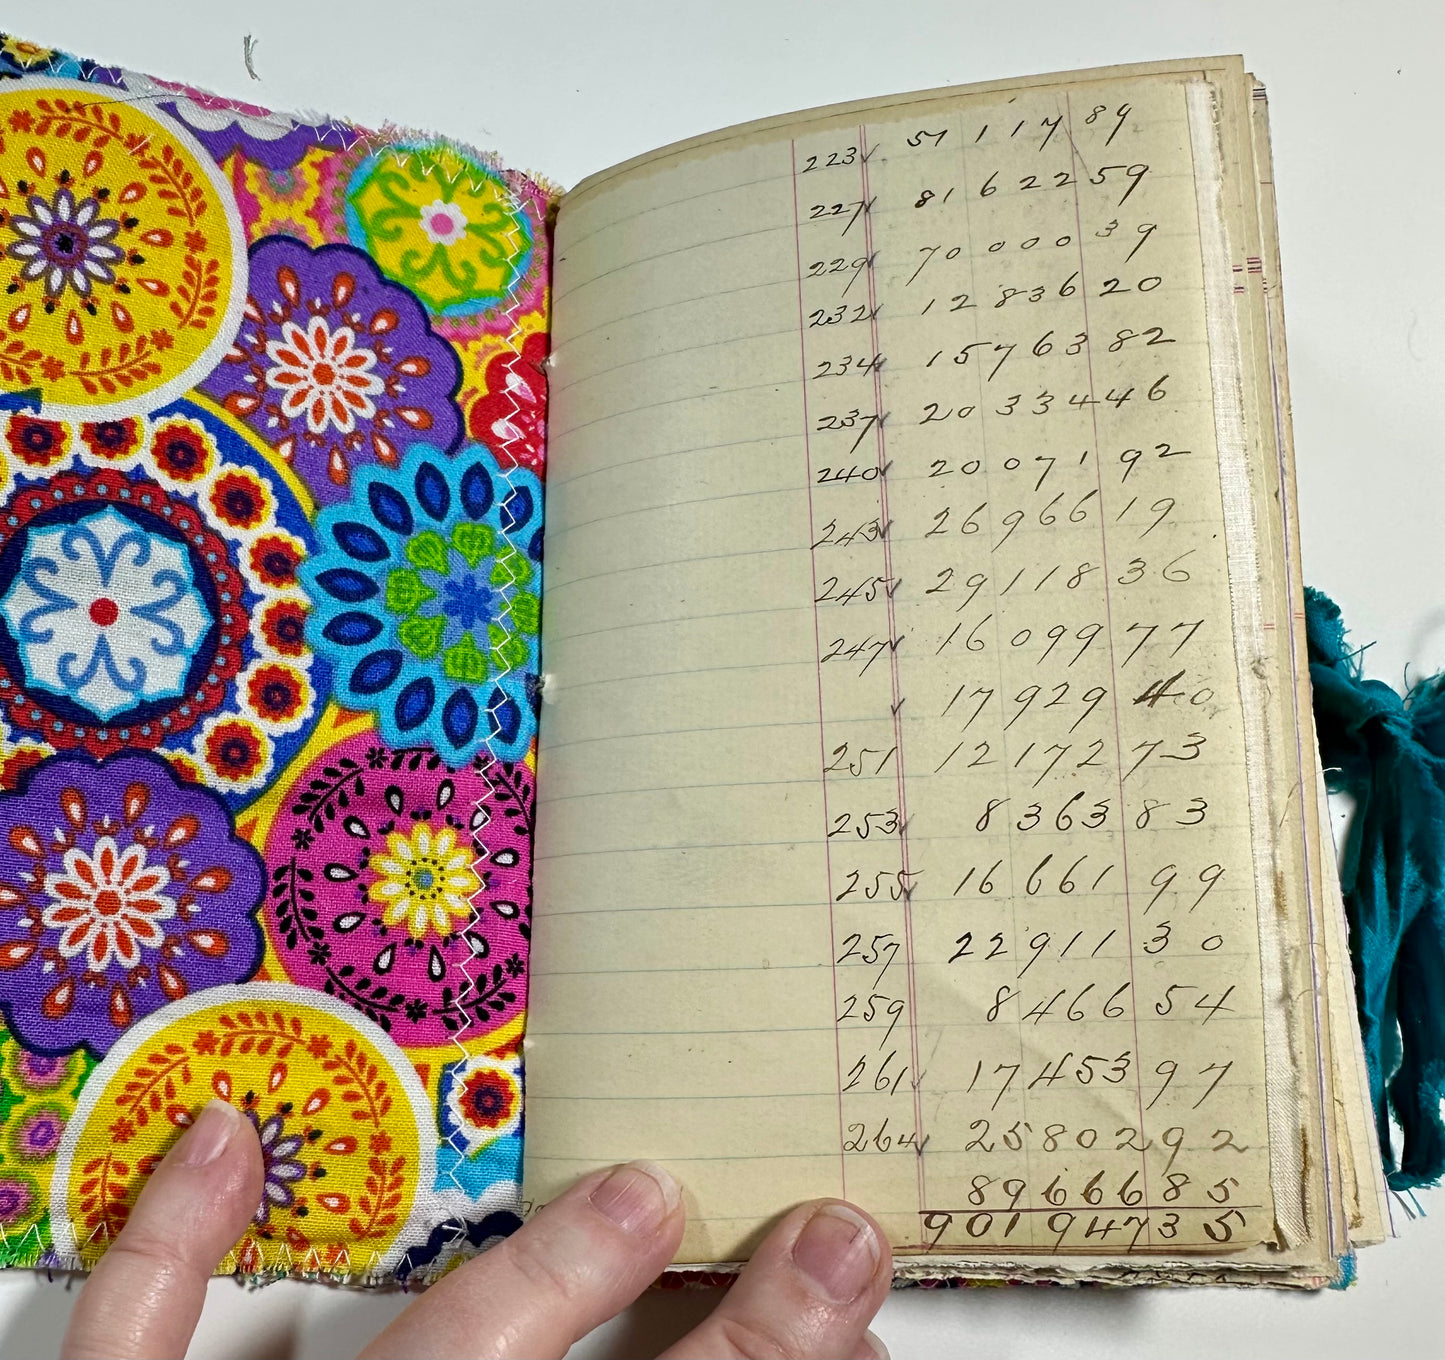 223✓ 57 117 89
227✓ 81 622 59
229✓ 70 000 39
232✓ 12 836 20
234✓ 15 763 82
237✓ 20 334 46
240✓ 20 071 92
243✓ 26 966 19
245✓ 29 118 36
247✓ 16 099 77
✓ 17 929 40
251 12 172 73
253✓ 8 363 83
255✓ 16 661 99
257 22 911 30
259 8 466 54
261✓ 17 453 97
264✓ 25 802 92
89 666 85
901 947 35